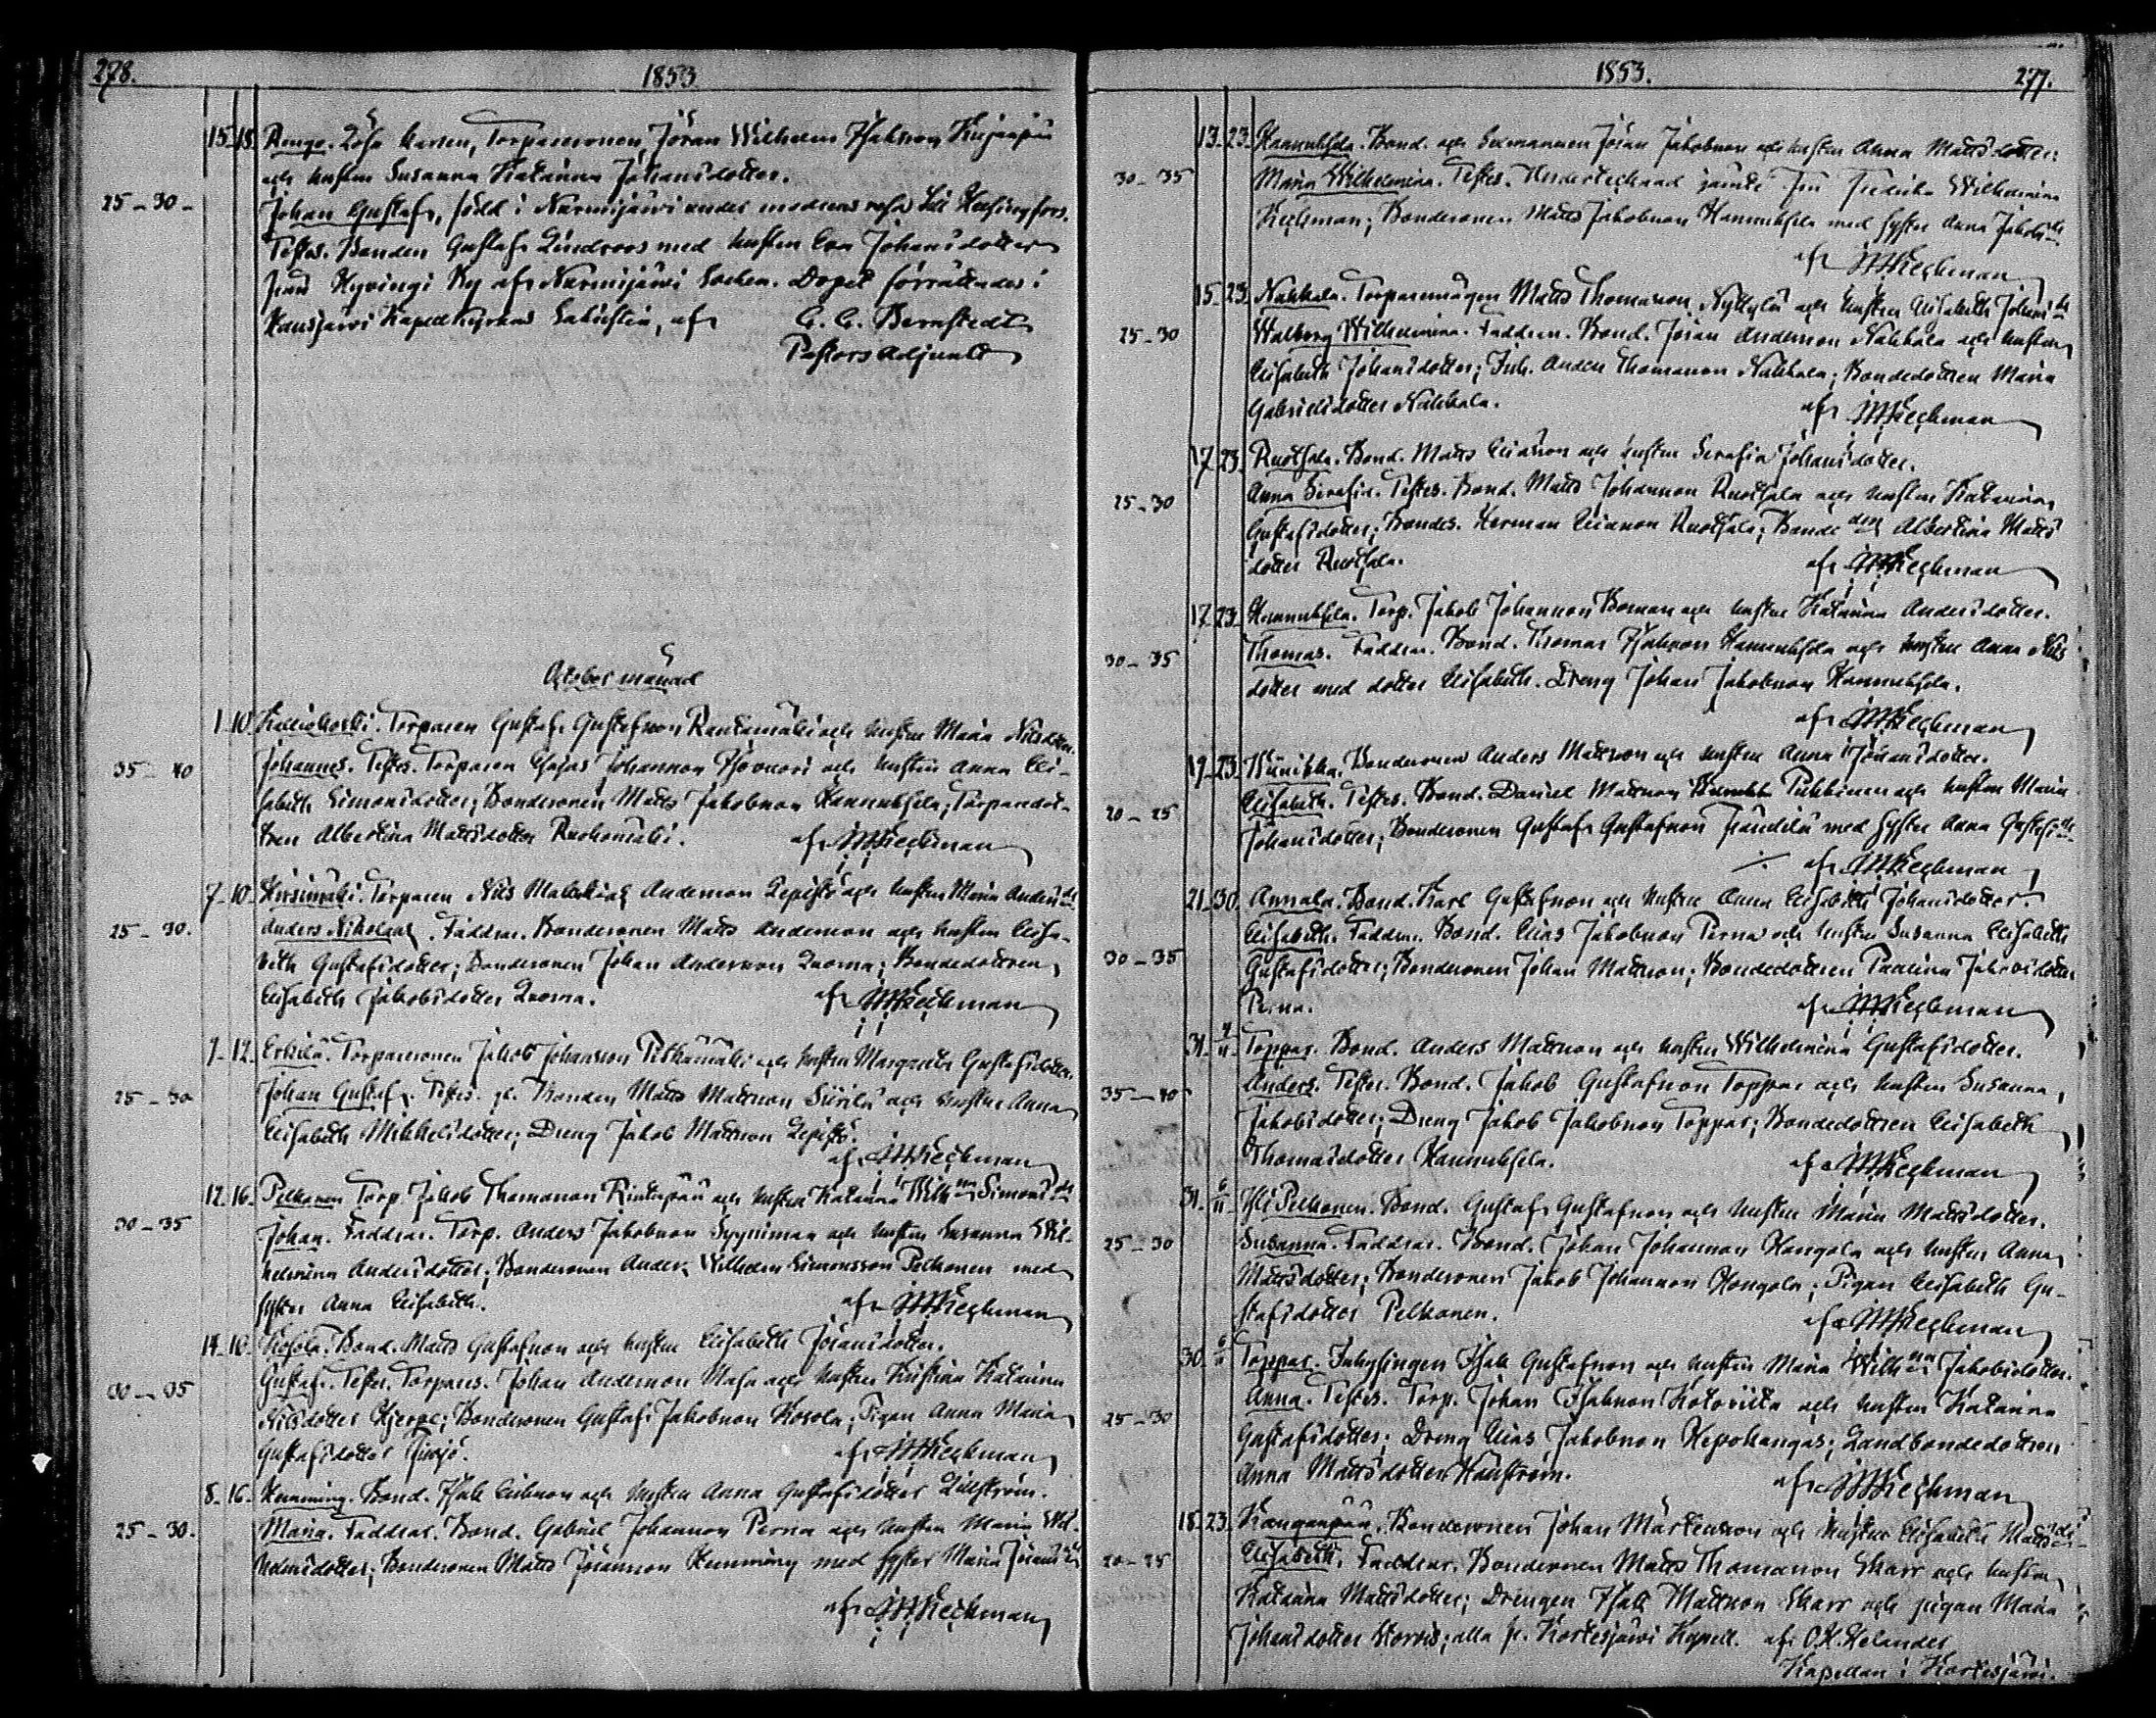 278.
1853.
15. 18. Rengo. Lösa karlen, Torparesonen Jöran Wilhelm Isaksson
och hustru Susanna Katarina Johansdotter.
25-30- Johan Gustaf, född i Nurmijärvi under modrens resa till Helsingfors.
Testes. Bonden Gustaf Lindroos med hustru Eva Johansdotter
från Hyvingi By af Nurmijärvi Socken. Dopet förrättades i
Hausjärvi Kapellkyrkas Sakristia, af C. G. Bernstedt
Pastors Adjunkt
October månad
1. 10. Kalliokoski. Torparen Gustaf Gustafsson Rantamäki och hustru Maria Nilsdotter.
35-40 Johannes. Testes. Torparen Esajas Johansson och hustru Anna Eli-
sabeth Simonsdotter; Bondesonen Matts Jakobsson Hannuksela; Torparedot-
tren Albertina Mattsdotter Ruohomäki. af Kieckman
7. 10. Hirsimäki. Torparen Nils Malakias Andersson Lepistö och hustru Maria Anders dr
25-30. Anders Nikolaus. Faddrar. Bondesonen Matts Andersson och hustru Elisa-
beth Gustafsdotter; Bondesonen Johan Andersson Luoma; Bondedottren
Elisabeth Jakobsdotter Luoma. af Kieckman
7. 12. Erkilä. Torparesonen Jakob Johansson Pitkämäki och hustru Margreta Gustafsdotter.
25-30 Johan Gustaf. Testes. gl. Bonden Matts Mattsson Siirilä och hustru Anna
Elisabeth Mikkelsdotter; Dreng Jakob Mattsson Lepistö.
af Kieckman
12. 16. Pelkonen Torp. Jakob Thomasson Rintapää och hustru Katarina Wilh:na Simons dr
30-35 Johan. Faddrar. Torp. Anders Jakobsson Syynimaa och hustru Susanna Wil-
helmina Andersdotter; Bondesonen Anders Wilhelm Simonsson Pelkonen med
syster Anna Elisabeth. af Kieckman
14. 16. Kosola. Bond. Matts Gustafsson och hustru Elisabeth Jöransdotter.
30-35 Gustaf. Testes. Torpares. Johan Andersson och hustru Kristina Katarina
Nilsdotter Hjerpe; Bondesonen Gustaf Jakobsson Kosola; Pigan Anna Maria
Gustafsdotter af Kieckman
8. 16. Hemming. Bond. Isak Eriksson och hustru Anna Gustafsdotter Lillström.
25-30. Maria. Faddrar. Bond. Gabriel Johansson Perna och hustru Maria Wil-
helmsdotter; Bondesonen Matts Jöransson Hemming med syster Maria Jörans dr
af Kieckman
1853.
277.
13. 23. Hannuksela. Bond. och Sexmannen Jöran Jakobsson och hustru Anna Mattsdotter.
30-35 Maria Wilhelmina. Testes. Undertecknad jemte Fru Fredrika Wilhelmina
Kieckman; Bondesonen Matts Jakobsson Hannuksela med syster Anna Jakobs dr
af Kieckman
15. 23. Nahkala. Torparemågen Matts Thomasson Nyttylä och hustru Elisabeth Johans dr
25-30 Walborg Wilhelmina. Faddrar. Bond. Jöran Andersson Nahkala och hustru
Elisabeth Johansdotter; Inh. Anders Thomasson Nahkala; Bondedottren Maria
Gabrielsdotter Nahkala. af Kieckman
17. 23. Ruotsala. Bond. Matts Eliasson och hustru Serafia Johansdotter.
25-30 Anna Serafia. Testes. Bond. Matts Johansson Ruotsala och hustru Katarina
Gustafsdotter; Bondes. Herman Eliasson Ruotsala; Bonde dn Albertina Matts
dotter Ruotsala. af Kieckman
17. 23. Hannuksela. Torp. Jakob Johansson Boman och hustru Katarina Andersdotter.
30-35 Thomas. Faddrar. Bond. Thomas Isaksson Hannuksela och hustru Anna Nils
dotter med dotter Elisabeth. Dreng Johan Jakobsson Hannuksela.
af Kieckman
19. 23. Wuniikka. Bondesonen Anders Mattsson och hustru Anna Jöransdotter.
20-25 Elisabeth. Testes. Bond. Daniel Mattsson Pukkinen och hustru Maria
Johansdotter; Bondesonen Gustaf Gustafsson Frändilä med syster Anna Gustafs dr
af Kieckman
21. 30. Annala. Bond. Karl Gustafsson och hustru Anna Elisabeth Johansdotter.
30-35 Elisabeth. Faddrar. Bond. Elias Jakobsson Perna och hustru Susanna Elisabeth
Gustafsdotter; Bondesonen Johan Mattsson; Bondedottren Paulina Jakobsdotter
Perna. af Kieckman
31. 4/11. Toppar. Bond. Anders Mattsson och hustru Wilhelmina Gustafsdotter.
35-40 Anders. Testes. Bond. Jakob Gustafsson Toppar och hustru Susanna
Jakobsdotter; Dreng Jakob Jakobsson Toppar; Bondedottren Elisabeth
Thomasdotter Hannuksela. af Kieckman
31. 6/11. Yli Pelkonen. Bond. Gustaf Gustafsson och hustru Maria Mattsdotter.
25-30 Susanna. Faddrar. Bond. Johan Johansson Kangola och hustru Anna
Mattsdotter; Bondesonen Jakob Johansson Kongola; Pigan Elisabeth Gu-
stafsdotter Pelkonen. af Kieckman
30. 6/11 Toppar. Inhysingen Isak Gustafsson och hustru Maria Wilh:na Jakobsdotter.
25-30 Anna. Testes. Torp. Johan Isaksson Kotoviita och hustru Katarina
Gustafsdotter; Dreng Elias Jakobsson Hepokangas; Landbondedottren
Anna Mattsdotter af Kieckman
18. 23. Kangaspää. Bondesonen Johan Mårtensson och hustru Elisabeth Matts dr
20-25 Elisabeth. Faddrar. Bondesonen Matts Thomasson Skarp och hustru
Katarina Mattsdotter; Drengen Isak Mattsson Skarp och pigan Maria
Johansdotter alla fr. Kortesjärvi Kapell. af O. H. Helander
Kapellan i Kortesjärvi.